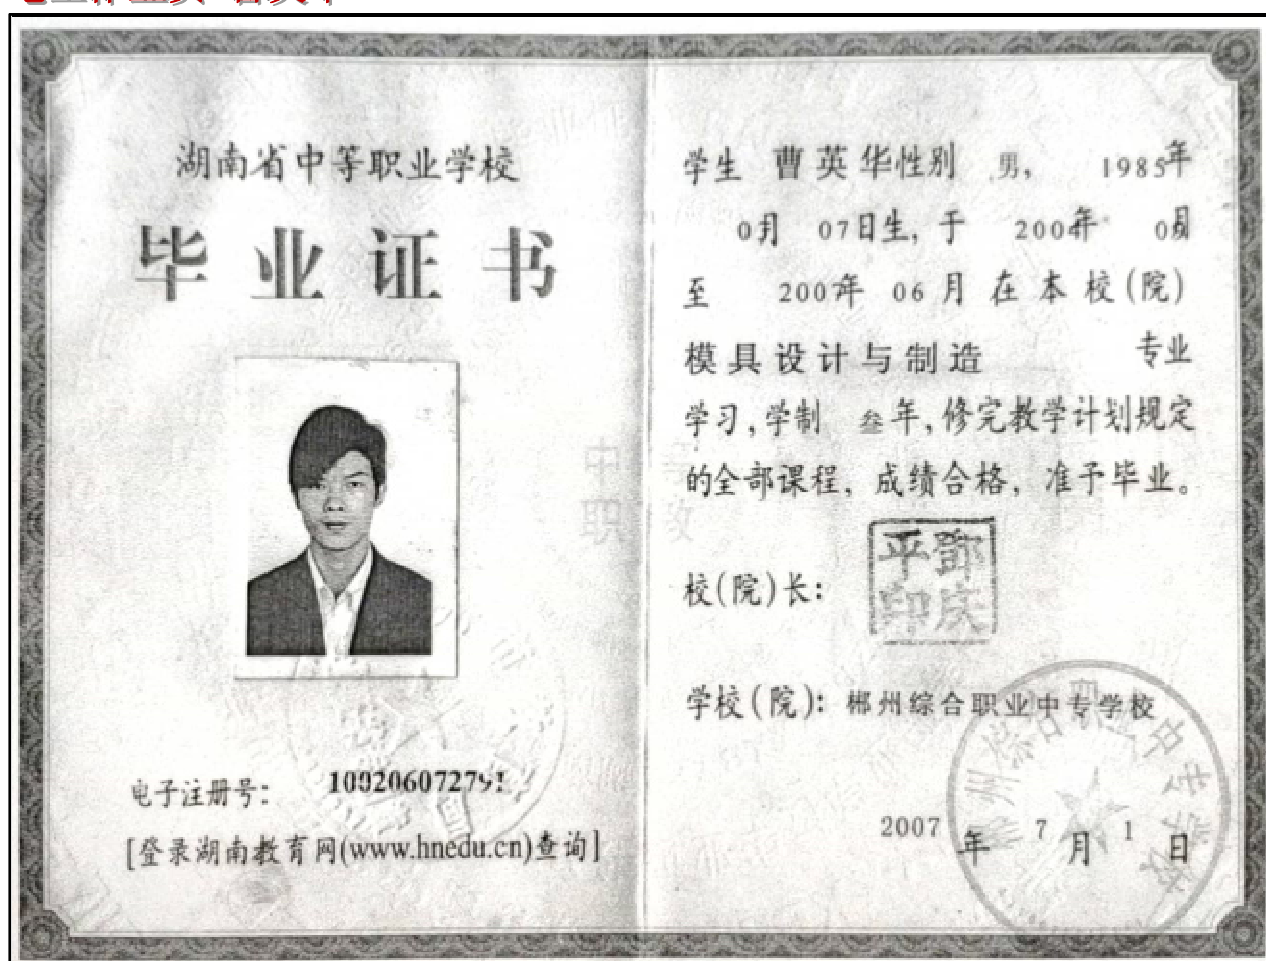 湖南省中等职业学校
毕业证书
电子注册号:
[登录湖南教育网(www.hnedu.cn)查询]
中等
职教
学生 曹英华性别 男, 1985年
0月 07日生,于 2004年 0月
至 2007年 06月在本校(院)
模具设计与制造 专业
学习,学制 叁年,修完教学计划规定
的全部课程,成绩合格,准予毕业。
校(院)长:
平邓
印庆
学校(院):郴州综合职业中专学校
郴州综合职业中专学校
2007年7月1日